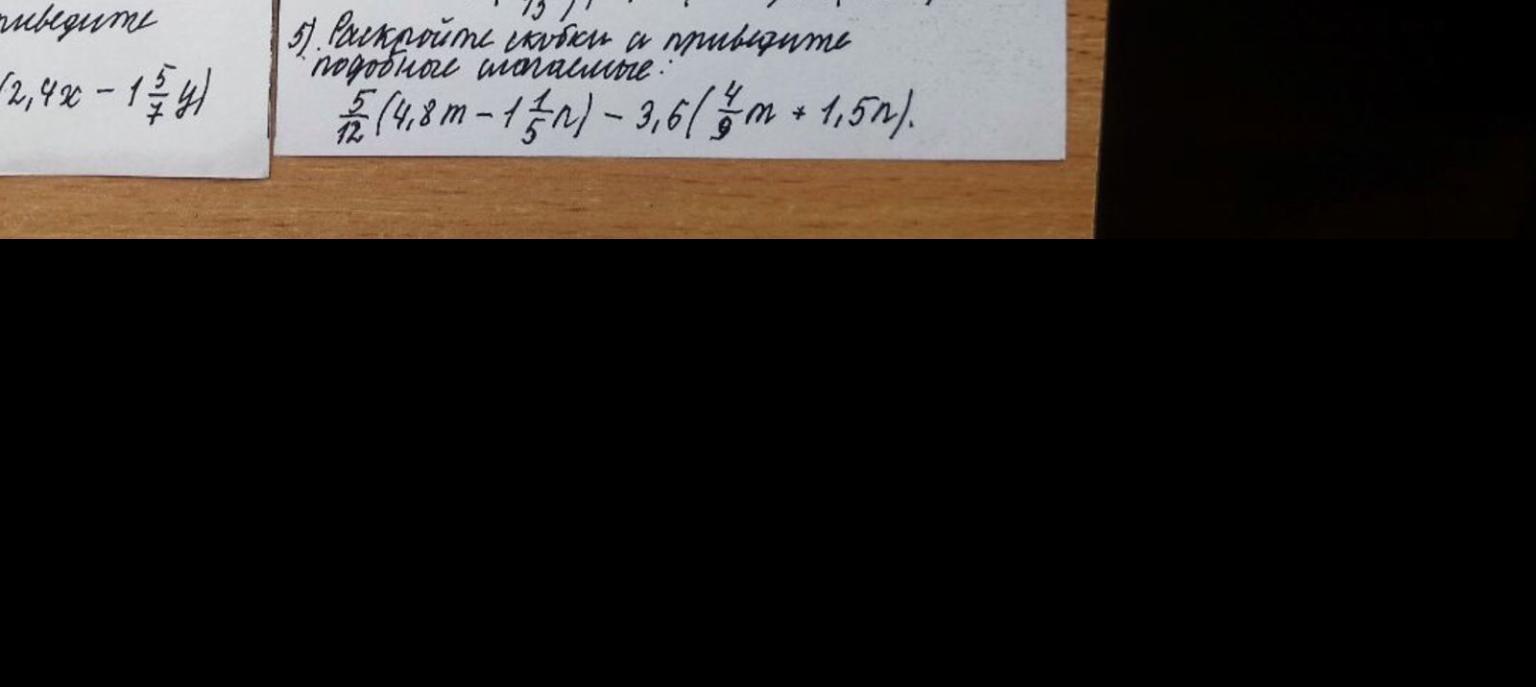 (2,4x - 1 5/7 y)
5). Раскройте скобки и приведите
подобные слагаемые:
5/12 (4,8m - 1 1/5 n) - 3,6 (4/9 m + 1,5n).